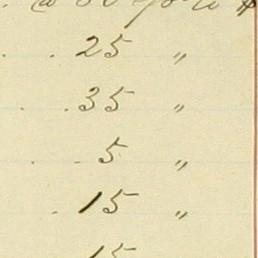 25 "
. . 35 "
. . 5 "
. 15 "
15